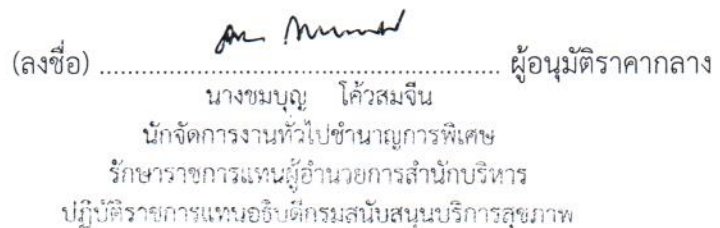 (ลงชื่อ) ........................................................... ผู้อนุมัติราคากลาง
นางชมบุญ โค้วสมจีน
นักจัดการงานทั่วไปชำนาญการพิเศษ
รักษาราชการแทนผู้อำนวยการสำนักบริหาร
ปฏิบัติราชการแทนอธิบดีกรมสนับสนุนบริการสุขภาพ